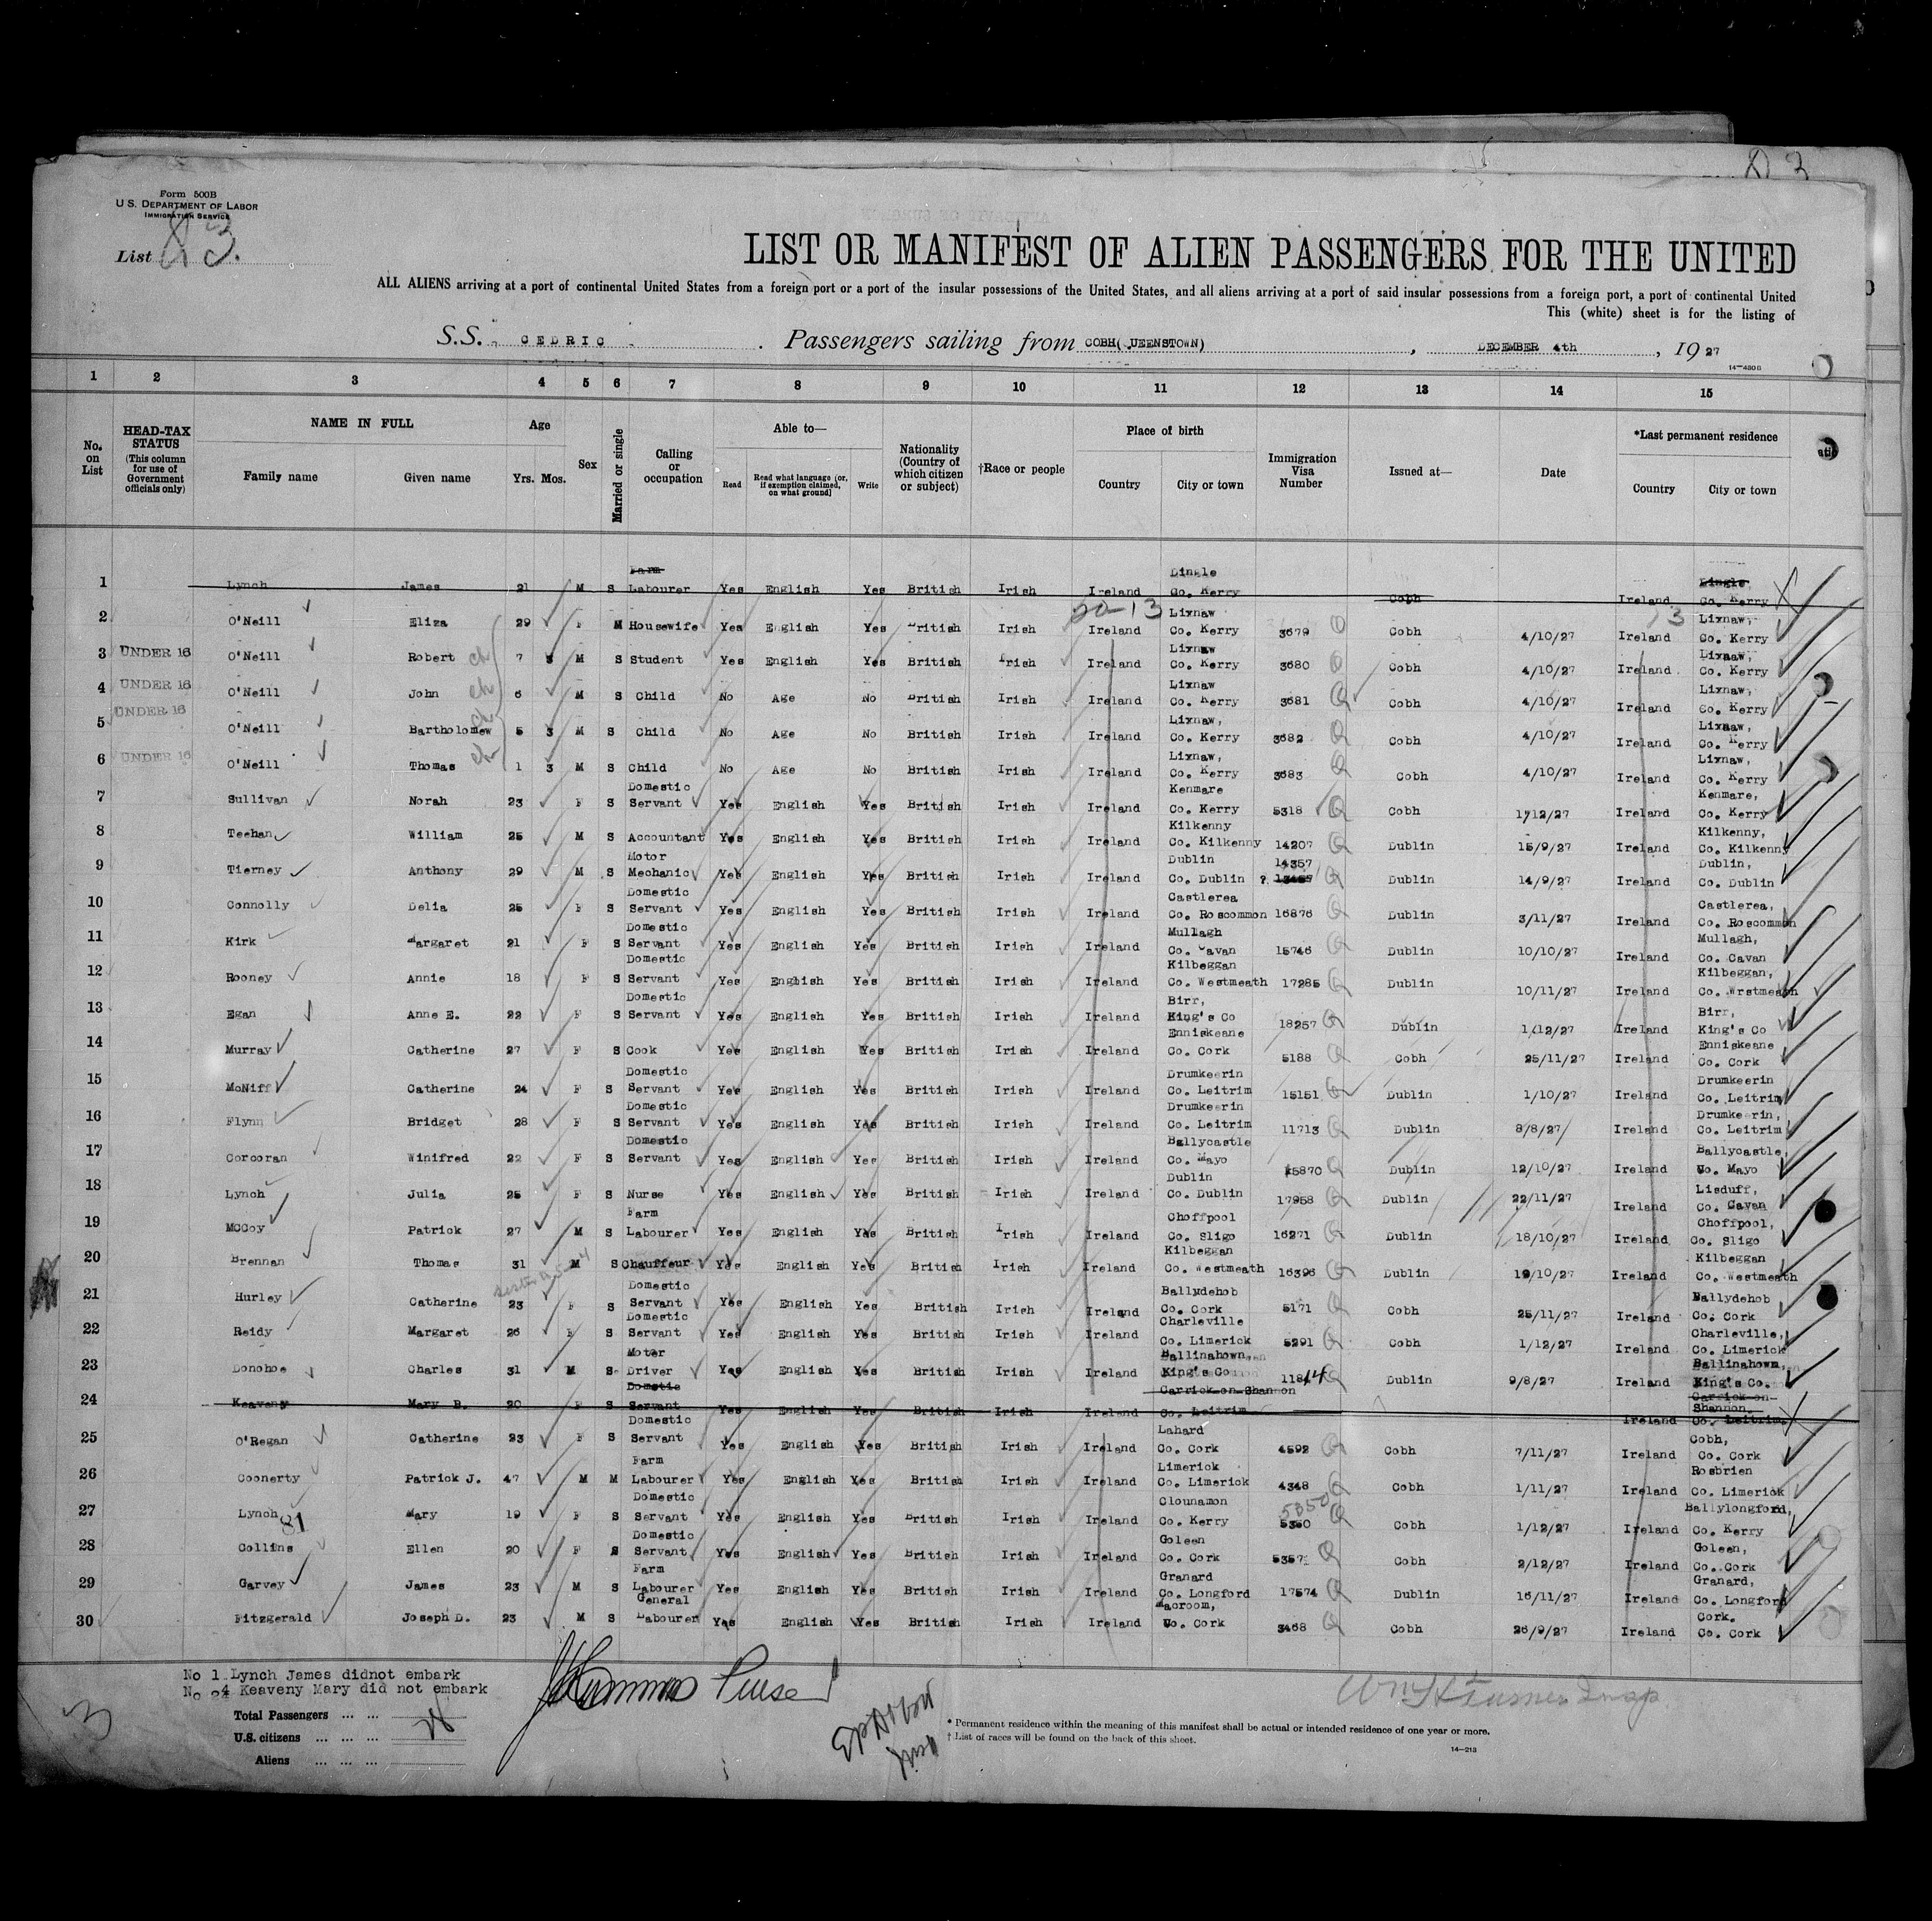 Form 500B
U.S. DEPARTMENT OF LABOR
IMMIGRATION SERVICE
List 83.
LIST OR MANIFEST OF ALIEN PASSENGERS FOR THE UNITED
ALL ALIENS arriving at a port of continental United States from a foreign port or a port of the insular possessions of the United States, and all aliens arriving at a port of said insular possessions from a foreign port, a port of continental United
This (white) sheet is for the listing of
S.S. CEDRIC . Passengers sailing from COBH( UEENSTOWN) , DECEMBER 4th , 19 27
14-480 B
1 2 3 4 5 6 7 8 9 10 11 12 13 14 15
No. on List HEAD-TAX STATUS (This column for use of Government officials only) NAME IN FULL Family name Given name Age Yrs. Mos. Sex Married or single Calling or occupation Able to— Read Read what language (or, if exemption claimed, on what ground) Write Nationality (Country of which citizen or subject) †Race or people Place of birth Country City or town Immigration Visa Number Issued at— Date *Last permanent residence Country City or town
1 Lynch James 21 M S Farm Labourer Yes English Yes British Irish Ireland Dingle Co. Kerry Cobh Ireland Dingle Co. Kerry X
20-13
2 O'Neill Eliza 29 F M Housewife Yes English Yes British Irish Ireland Lixnaw Co. Kerry 3679 Cobh 4/10/27 Ireland Lixnaw, Co. Kerry
3 UNDER 16 O'Neill Robert ch 7 3 M S Student Yes English Yes British Irish Ireland Lixnaw Co. Kerry 3680 Cobh 4/10/27 Ireland Lixnaw, Co. Kerry
4 UNDER 16 O'Neill John ch 6 M S Child No Age No British Irish Ireland Lixnaw Co. Kerry 3681 Cobh 4/10/27 Ireland Lixnaw, Co. Kerry
5 UNDER 16 O'Neill Bartholomew ch 5 3 M S Child No Age No British Irish Ireland Lixnaw, Co. Kerry 3682 Cobh 4/10/27 Ireland Lixnaw, Co. Kerry
6 UNDER 16 O'Neill Thomas ch 1 3 M S Child No Age No British Irish Ireland Lixnaw, Co. Kerry 3683 Cobh 4/10/27 Ireland Lixnaw, Co. Kerry
7 Sullivan Norah 23 F S Domestic Servant Yes English Yes British Irish Ireland Kenmare Co. Kerry 5318 Cobh 1/12/27 Ireland Kenmare, Co. Kerry
8 Teehan William 25 M S Accountant Yes English Yes British Irish Ireland Kilkenny Co. Kilkenny 14207 Dublin 15/9/27 Ireland Kilkenny, Co. Kilkenny
9 Tierney Anthony 29 M S Motor Mechanic Yes English Yes British Irish Ireland Dublin Co. Dublin 14357 Dublin 14/9/27 Ireland Dublin, Co. Dublin
10 Connolly Delia 25 F S Domestic Servant Yes English Yes British Irish Ireland Castlerea Co. Roscommon 16876 Dublin 3/11/27 Ireland Castlerea, Co. Roscommon
11 Kirk Margaret 21 F S Domestic Servant Yes English Yes British Irish Ireland Mullagh Co. Cavan 15746 Dublin 10/10/27 Ireland Mullagh, Co. Cavan
12 Rooney Annie 18 F S Domestic Servant Yes English Yes British Irish Ireland Kilbeggan Co. Westmeath 17285 Dublin 10/11/27 Ireland Kilbeggan, Co. Wrstmeath
13 Egan Anne E. 22 F S Domestic Servant Yes English Yes British Irish Ireland Birr, King's Co 18257 Dublin 1/12/27 Ireland Birr, King's Co
14 Murray Catherine 27 F S Cook Yes English Yes British Irish Ireland Enniskeane Co. Cork 5188 Cobh 25/11/27 Ireland Enniskeane Co. Cork
15 McNiff Catherine 24 F S Domestic Servant Yes English Yes British Irish Ireland Drumkeerin Co. Leitrim 15151 Dublin 1/10/27 Ireland Drumkeerin Co. Leitrim
16 Flynn Bridget 28 F S Domestic Servant Yes English Yes British Irish Ireland Drumkeerin Co. Leitrim 11713 Dublin 8/8/27 Ireland Drumkeerin, Co. Leitrim
17 Corcoran Winifred 22 F S Domestic Servant Yes English Yes British Irish Ireland Ballycastle Co. Mayo 15870 Dublin 12/10/27 Ireland Ballycastle, Co. Mayo
18 Lynch Julia 25 F S Nurse Yes English Yes British Irish Ireland Dublin Co. Dublin 17958 Dublin 22/11/27 Ireland Lisduff, Co. Cavan
19 McCoy Patrick 27 M S Farm Labourer Yes English Yes British Irish Ireland Choffpool Co. Sligo 16271 Dublin 18/10/27 Ireland Choffpool, Co. Sligo
20 Brennan Thomas 31 M S Chauffeur Yes English Yes British Irish Ireland Kilbeggan Co. Westmeath 16396 Dublin 19/10/27 Ireland Kilbeggan Co. Westmeath
21 Hurley Catherine 23 F S Domestic Servant Yes English Yes British Irish Ireland Ballydehob Co. Cork 5171 Cobh 25/11/27 Ireland Ballydehob Co. Cork
22 Reidy Margaret 26 F S Domestic Servant Yes English Yes British Irish Ireland Charleville Co. Limerick 5291 Cobh 1/12/27 Ireland Charleville, Co. Limerick
23 Donohoe Charles 31 M S Motor Driver Yes English Yes British Irish Ireland Ballinahown King's Co 11844 Dublin 9/8/27 Ireland Ballinahown, King's Co.
24 Keaveny Mary B. 20 F S Domstic Servant Yes English Yes British Irish Ireland Carrick-on-Shannon Co. Leitrim Ireland Carrick-on-Shannon Co. Leitrim X
25 O'Regan Catherine 23 F S Domestic Servant Yes English Yes British Irish Ireland Lahard Co. Cork 4592 Cobh 7/11/27 Ireland Cobh, Co. Cork
26 Coonerty Patrick J. 47 M M Farm Labourer Yes English Yes British Irish Ireland Limerick Co. Limerick 4348 Cobh 1/11/27 Ireland Rosbrien Co. Limerick
27 Lynch 81 Mary 19 F S Domestic Servant Yes English Yes British Irish Ireland Clounamon Co. Kerry 5350 Cobh 1/12/27 Ireland Ballylongford, Co. Kerry
28 Collins Ellen 20 F S Domestic Servant Yes English Yes British Irish Ireland Goleen Co. Cork 5357 Cobh 2/12/27 Ireland Goleen, Co. Cork
29 Garvey James 23 M S Farm Labourer Yes English Yes British Irish Ireland Granard Co. Longford 17574 Dublin 16/11/27 Ireland Granard, Co. Longford
30 Fitzgerald Joseph D. 23 M S General Labourer Yes English Yes British Irish Ireland Macroom, Co. Cork 3468 Cobh 26/9/27 Ireland Cork. Co. Cork
No 1 Lynch James didnot embark
No 24 Keaveny Mary did not embark
Total Passengers ... ...
U.S. citizens ... ... ...
Aliens ... ... ...
3
Purser
* Permanent residence within the meaning of this manifest shall be actual or intended residence of one year or more.
† List of races will be found on the back of this sheet.
14-213